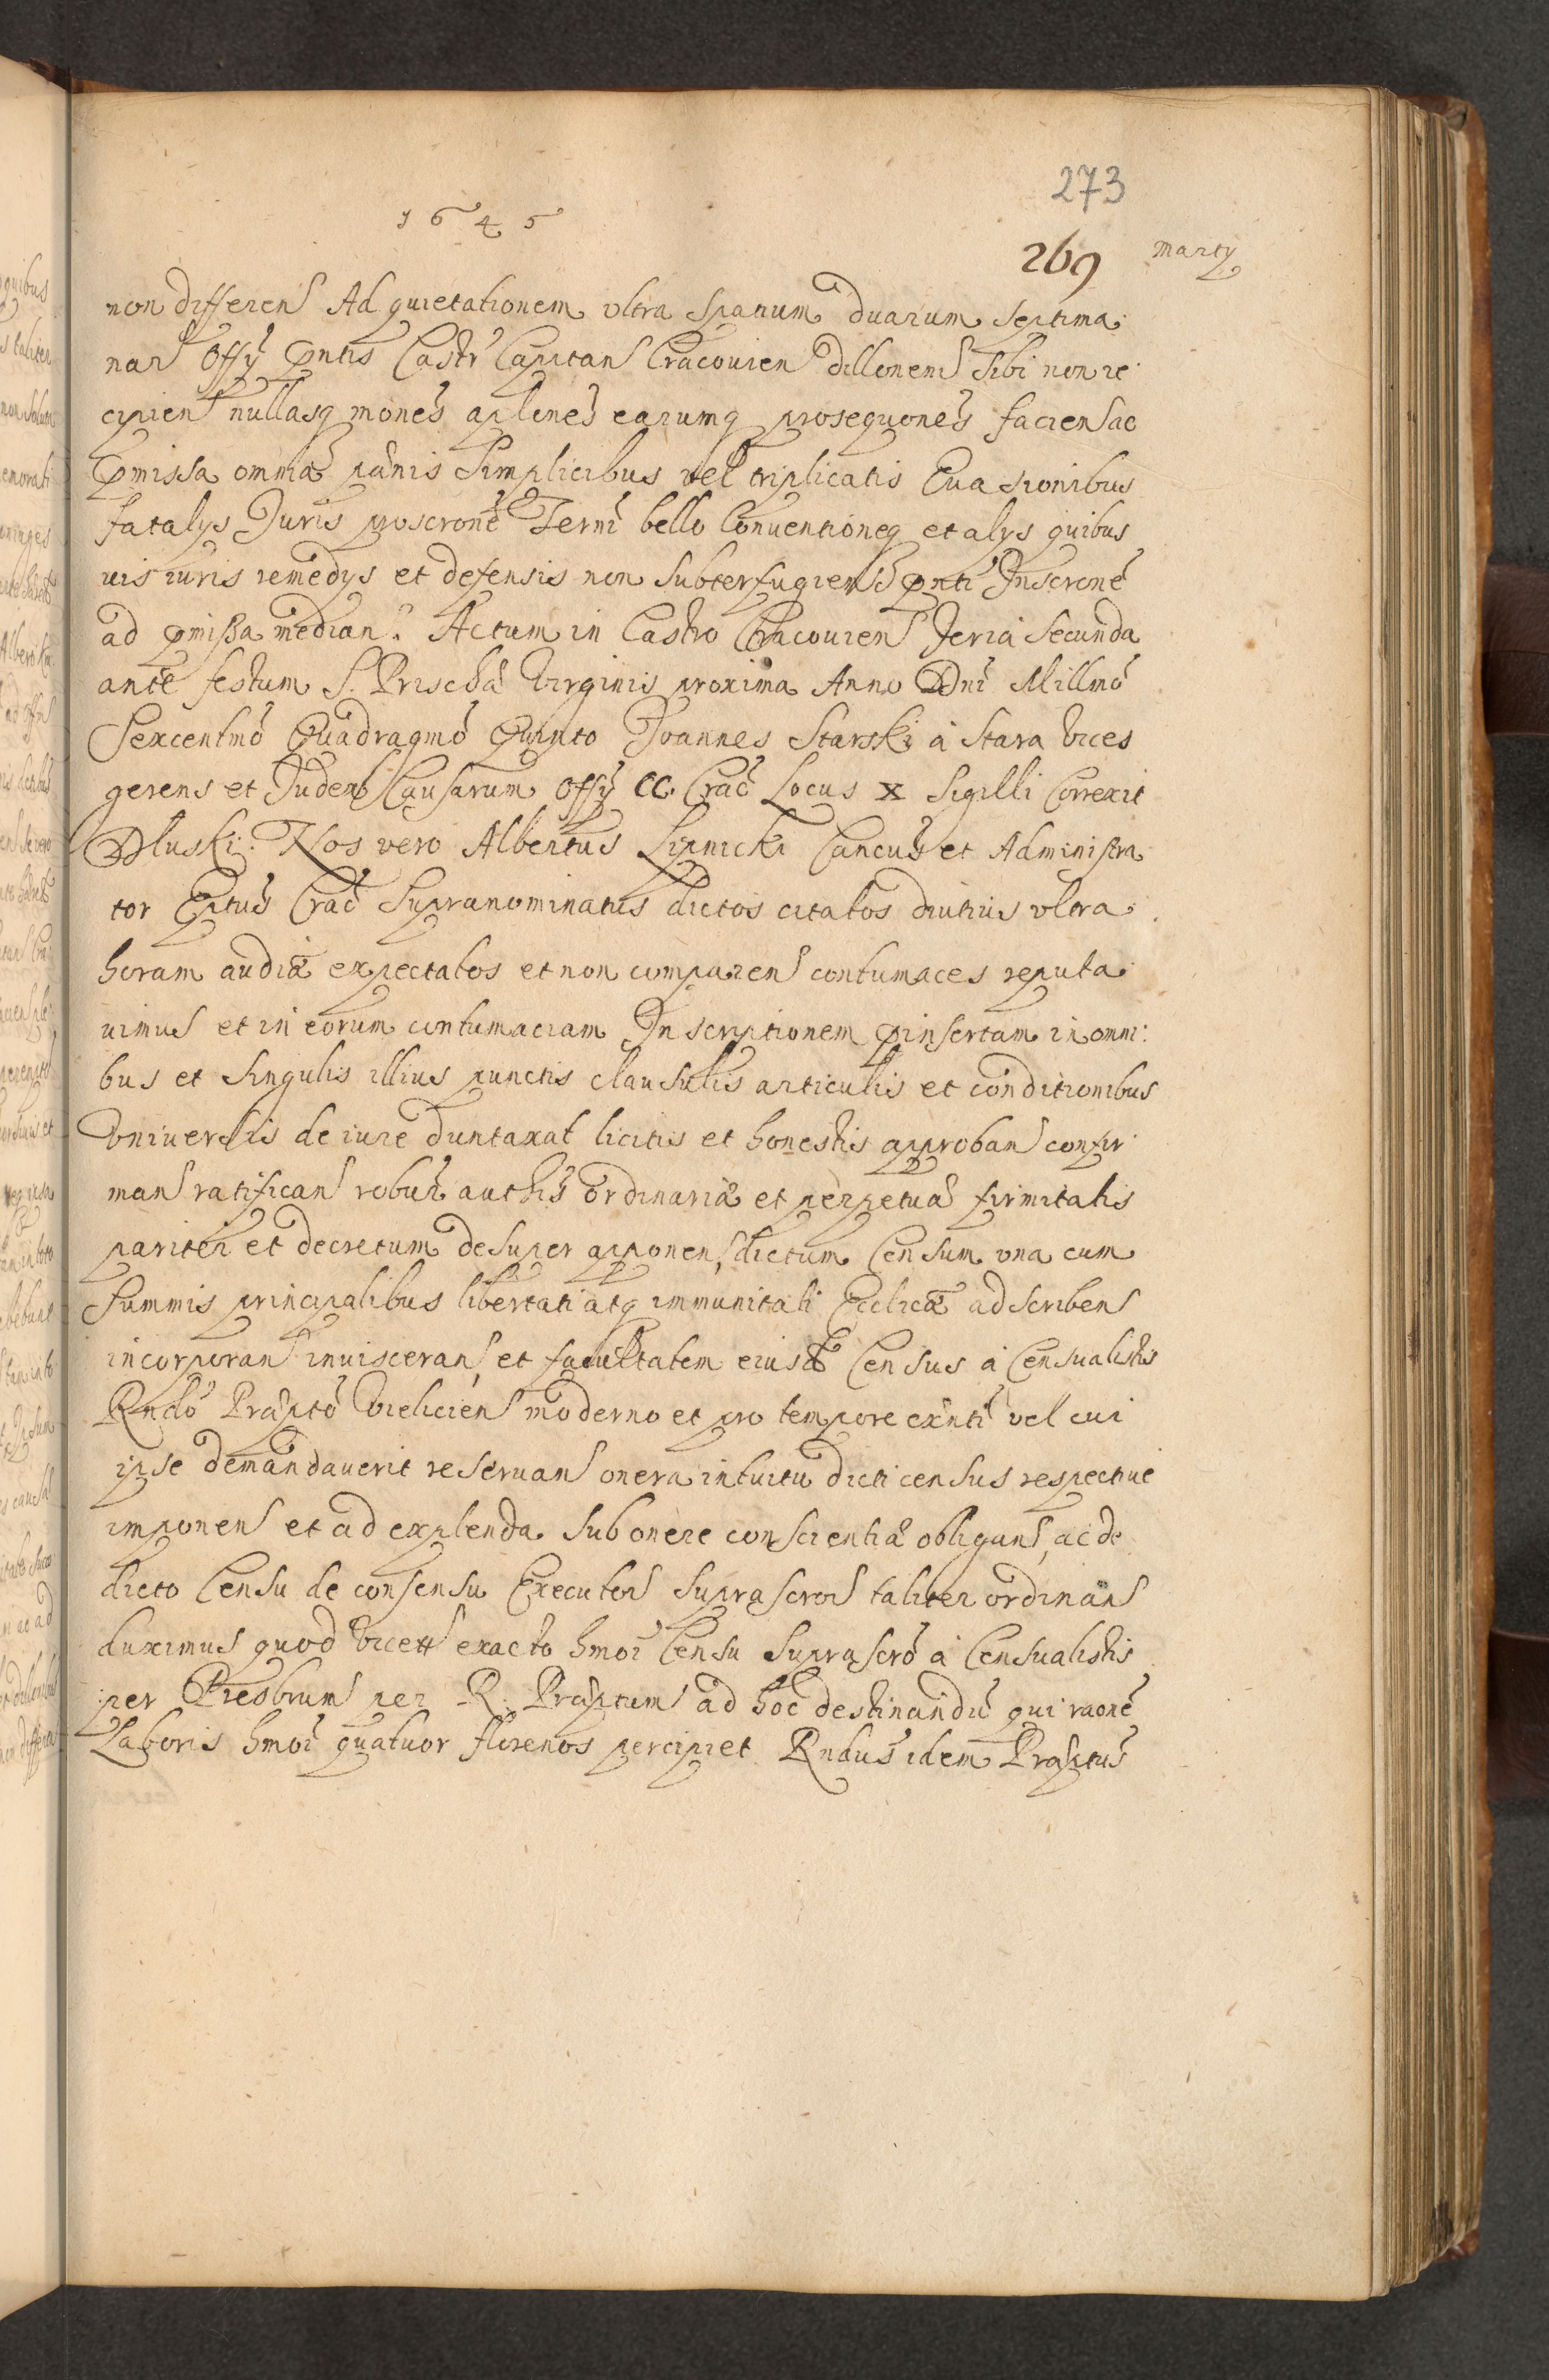 273
1645
269 Marty
non differen Ad quietationem vltra spatium duarum septima
nar Offÿ pntis Castr Capitan Cracouien dillonem sibi non re
cipien nullasq mones aplones earumq prosequones facien ac
pmissa omnia panis simplicibus vel triplicatis Euasionibus
fatalys Juris proscrone Termi bello Conuentioneq et alys quibus
uis iuris remedys et defensis non subterfugien pnti Inscrone
ad pmissa median. Actum in Castro Cracouien Feria Secunda
ante festum S. Priscæ Virginis proxima Anno Dni Millmo
Sexcentmo Quadragmo Quinto Joannes Starski à Stara Vices
gerens et Judex Causarum Offÿ CC. Crac Locus x Sigilli Correxit
Dluski: Nos vero Albertus Lipnicki Cancus et Administra
tor Eptus Crac Supranominatus dictos citatos diutius vltra
horam audiæ expectatos et non comparen contumaces reputa
uimus et in eorum contumaciam Inscriptionem pinsertam in omni:
bus et singulis illius punctis clausulis articulis et conditionibus
Vniuersis de iure duntaxat licitis et honestis approban confir
man ratifican robur authis ordinariæ et perpetuæ firmitatis
pariter et decretum desuper apponen, dictum Censum vna cum
summis principalibus libertati atq immunitati Eccliæ adscriben
incorporan inuisceran, et facultatem eiusd Census à Censualistis
Rndo Præpto Vielicien moderno et pro tempore exnti vel cui
ipse demandauerit reseruan onera intuitu dicti census respectiue
imponen et ad explenda sub onere conscientiæ obligan, ac de
dicto Censu de consensu Executor suprascror taliter ordinan
duximus quod exacto hmoi Censu suprascro à Censualistis
per Presbrum per R. Præptum ad hoc destinandu qui raone
Laboris hmoi quatuor florenos percipiet Rndus idem Præptus